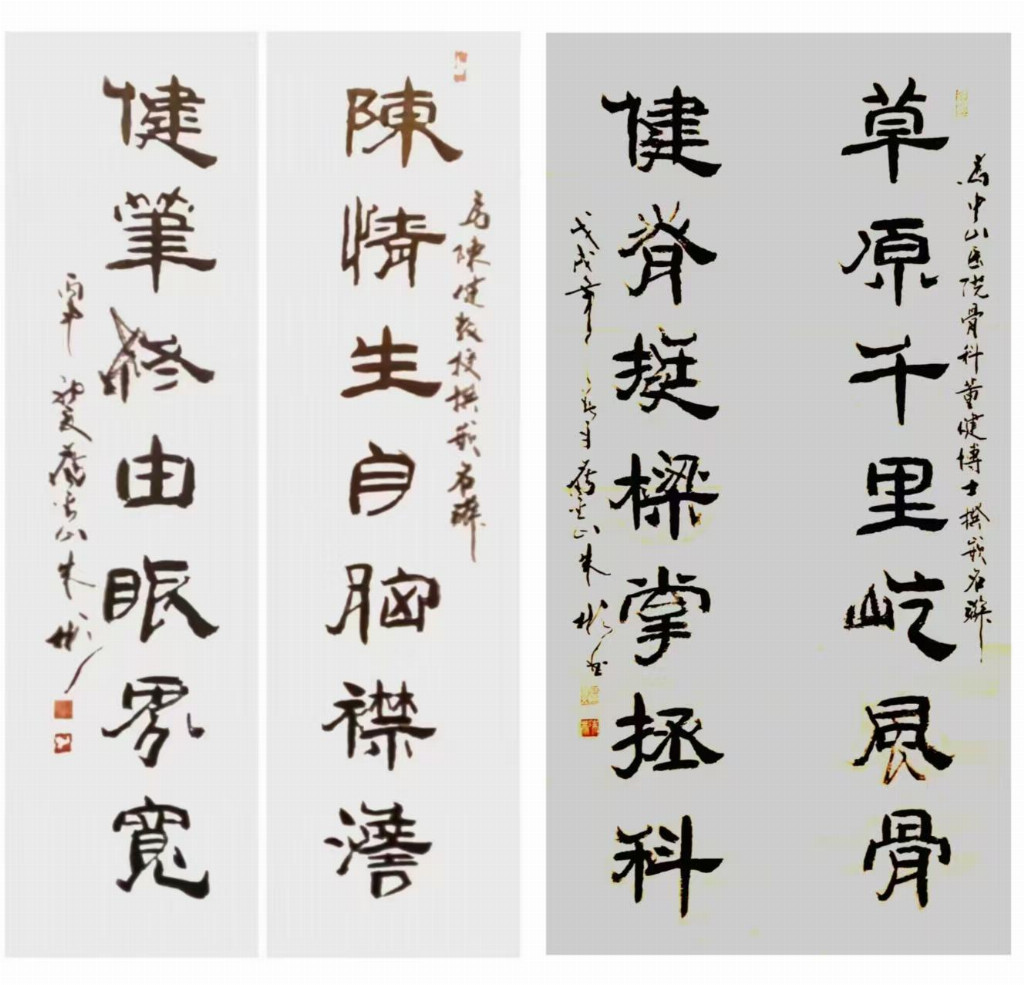 陳情生自胸襟澹
為陳健教授撰嵌名聯
健筆修由眼界寬
朱彬
為中山医院骨科董健博士撰嵌名聯
草原千里屹風骨
健脊挺樑掌拯科
戊戌年
朱彬書